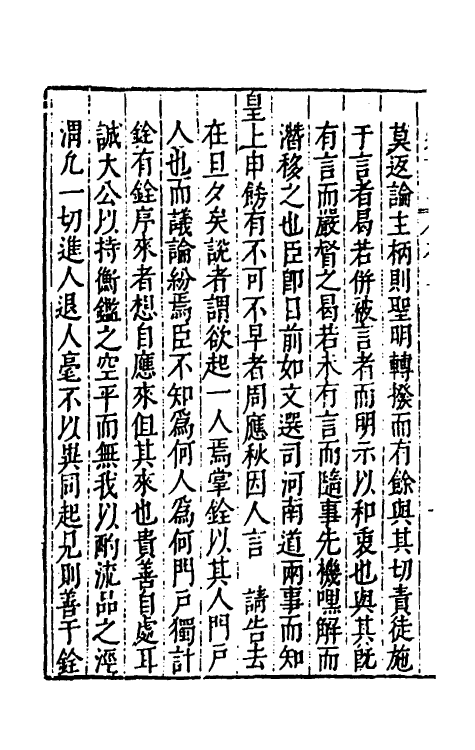 莫返論主柄則聖明轉撥而有餘與其切責徒施
于言者曷若併彼言者而明示以和衷也與其旣
有言而嚴督之曷若未有言而隨事先機嘿解而
潛移之也臣卽日前如文選司河南道兩事而知
皇上申飭有不可不早者周應秋因人言　請告去
在旦夕矣說者謂欲起一人焉掌銓以其人門戶
人也而議論紛焉臣不知爲何人爲何門戶獨計
銓有銓序來者想自應來但其來也貴善自處耳
誠大公以持衡鑑之空平而無我以酌流品之涇
渭凡一切進人退人毫不以與同起見則善于銓